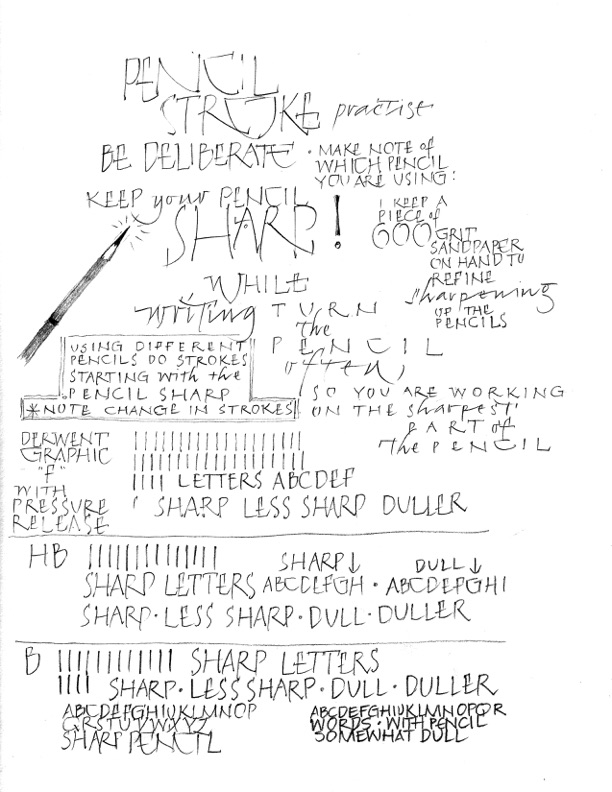 PENCIL
STROKE practise
BE DELIBERATE · MAKE NOTE of
WHICH PENCIL
YOU ARE USING:
KEEP your PENCIL
SHARP!
I KEEP A
PIECE of
600 GRIT
SANDPAPER
ON HAND TO
REFINE
sharpening
UP THE
PENCILS
WHILE
writing TURN
the
PENCIL
often,
SO YOU ARE WORKING
ON THE sharpest
PART of
The PENCIL
USING DIFFERENT
PENCILS DO STROKES
STARTING with the
PENCIL SHARP
*NOTE CHANGE IN STROKES
DERWENT
GRAPHIC
"f"
WITH
PRESSURE
RELEASE
LETTERS ABCDEF
SHARP LESS SHARP DULLER
HB
SHARP↓ DULL↓
SHARP LETTERS ABCDEFGH · ABCDEFGHI
SHARP · LESS SHARP · DULL · DULLER
B SHARP LETTERS
SHARP · LESS SHARP · DULL · DULLER
ABCDEFGHIJKLMNOP
QRSTUVWXYZ
SHARP PENCIL
ABCDEFGHIJKLMNOPQR
WORDS · WITH PENCIL
SOMEWHAT DULL